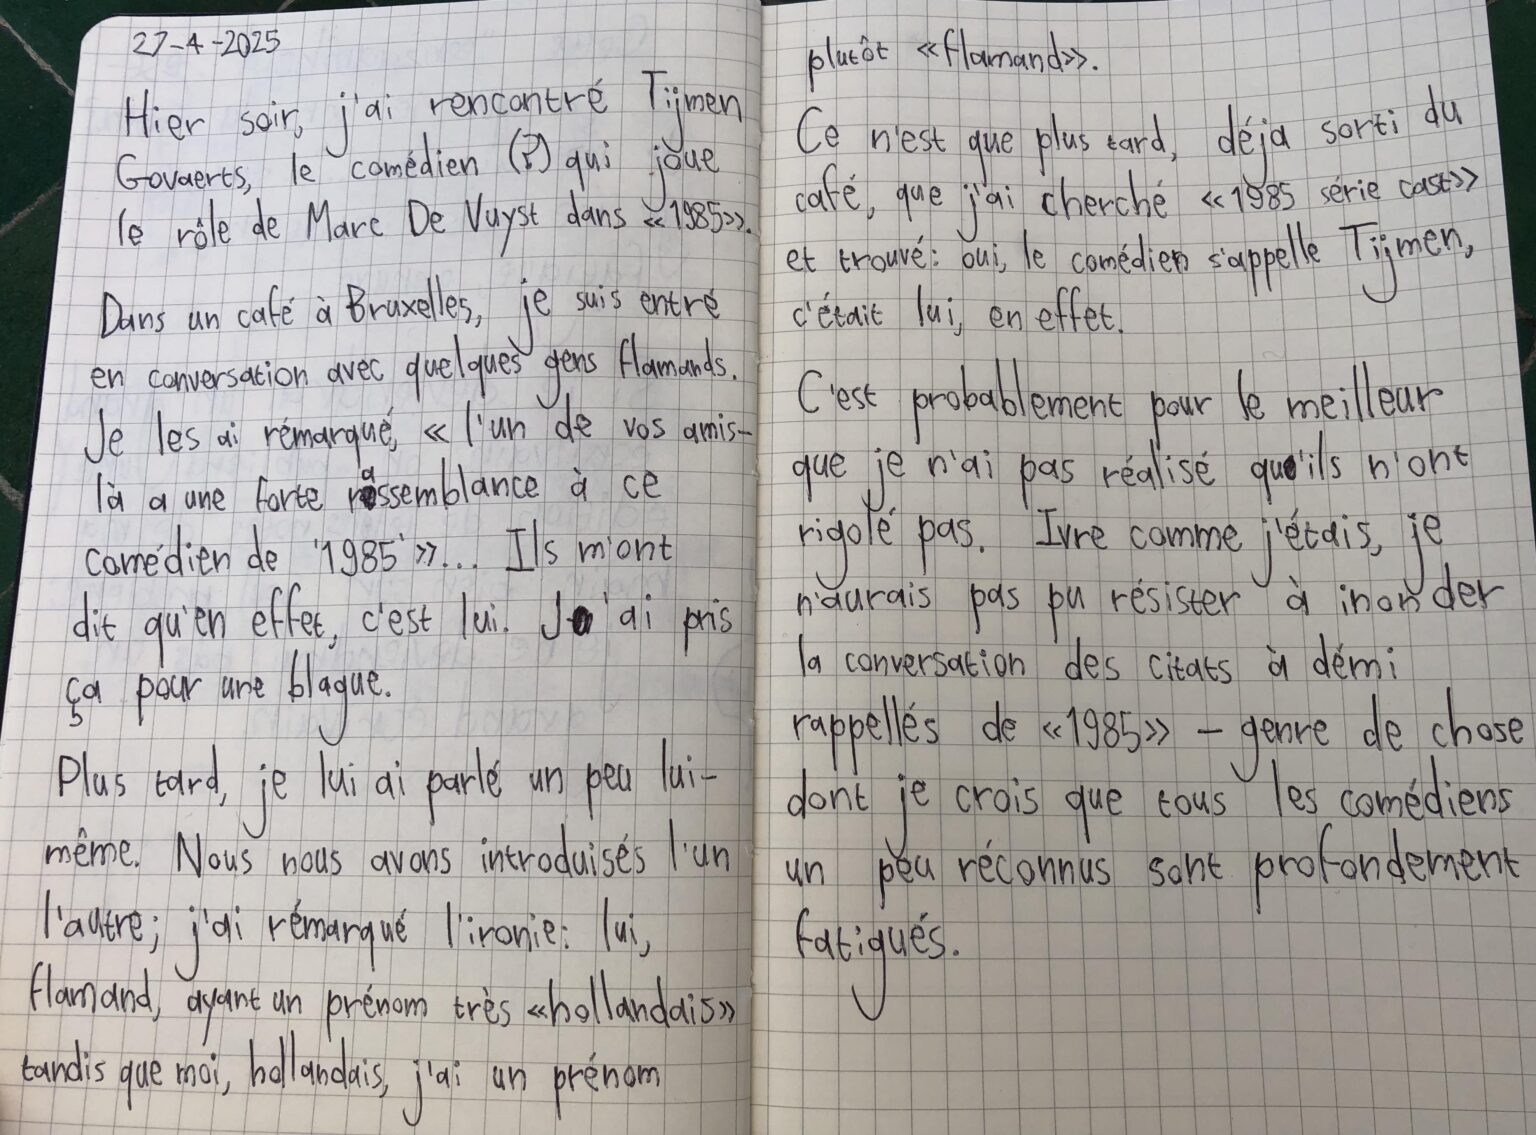 27-4-2025
Hier soir, j'ai rencontré Tijmen
Govaerts, le comédien (?) qui joue
le rôle de Marc De Vuyst dans «1985».
Dans un café à Bruxelles, je suis entré
en conversation avec quelques gens flamands.
Je les ai rémarqué, «l'un de vos amis-
là a une forte rassemblance à ce
comédien de '1985'»... Ils m'ont
dit qu'en effet, c'est lui. J'ai pris
ça pour une blague.
Plus tard, je lui ai parlé un peu lui-
même. Nous nous avons introduisés l'un
l'autre; j'ai rémarqué l'ironie: lui,
flamand, ayant un prénom très «hollandais»
tandis que moi, hollandais, j'ai un prénom
plutôt «flamand».
Ce n'est que plus tard, déja sorti du
café, que j'ai cherché «1985 série cast»
et trouvé: oui, le comédien s'appelle Tijmen,
c'était lui, en effet.
C'est probablement pour le meilleur
que je n'ai pas réalisé qu'ils n'ont
rigolé pas. Ivre comme j'étais, je
n'aurais pas pu résister à inonder
la conversation des citats à démi
rappellés de «1985» - genre de chose
dont je crois que tous les comédiens
un peu réconnus sont profondement
fatigués.